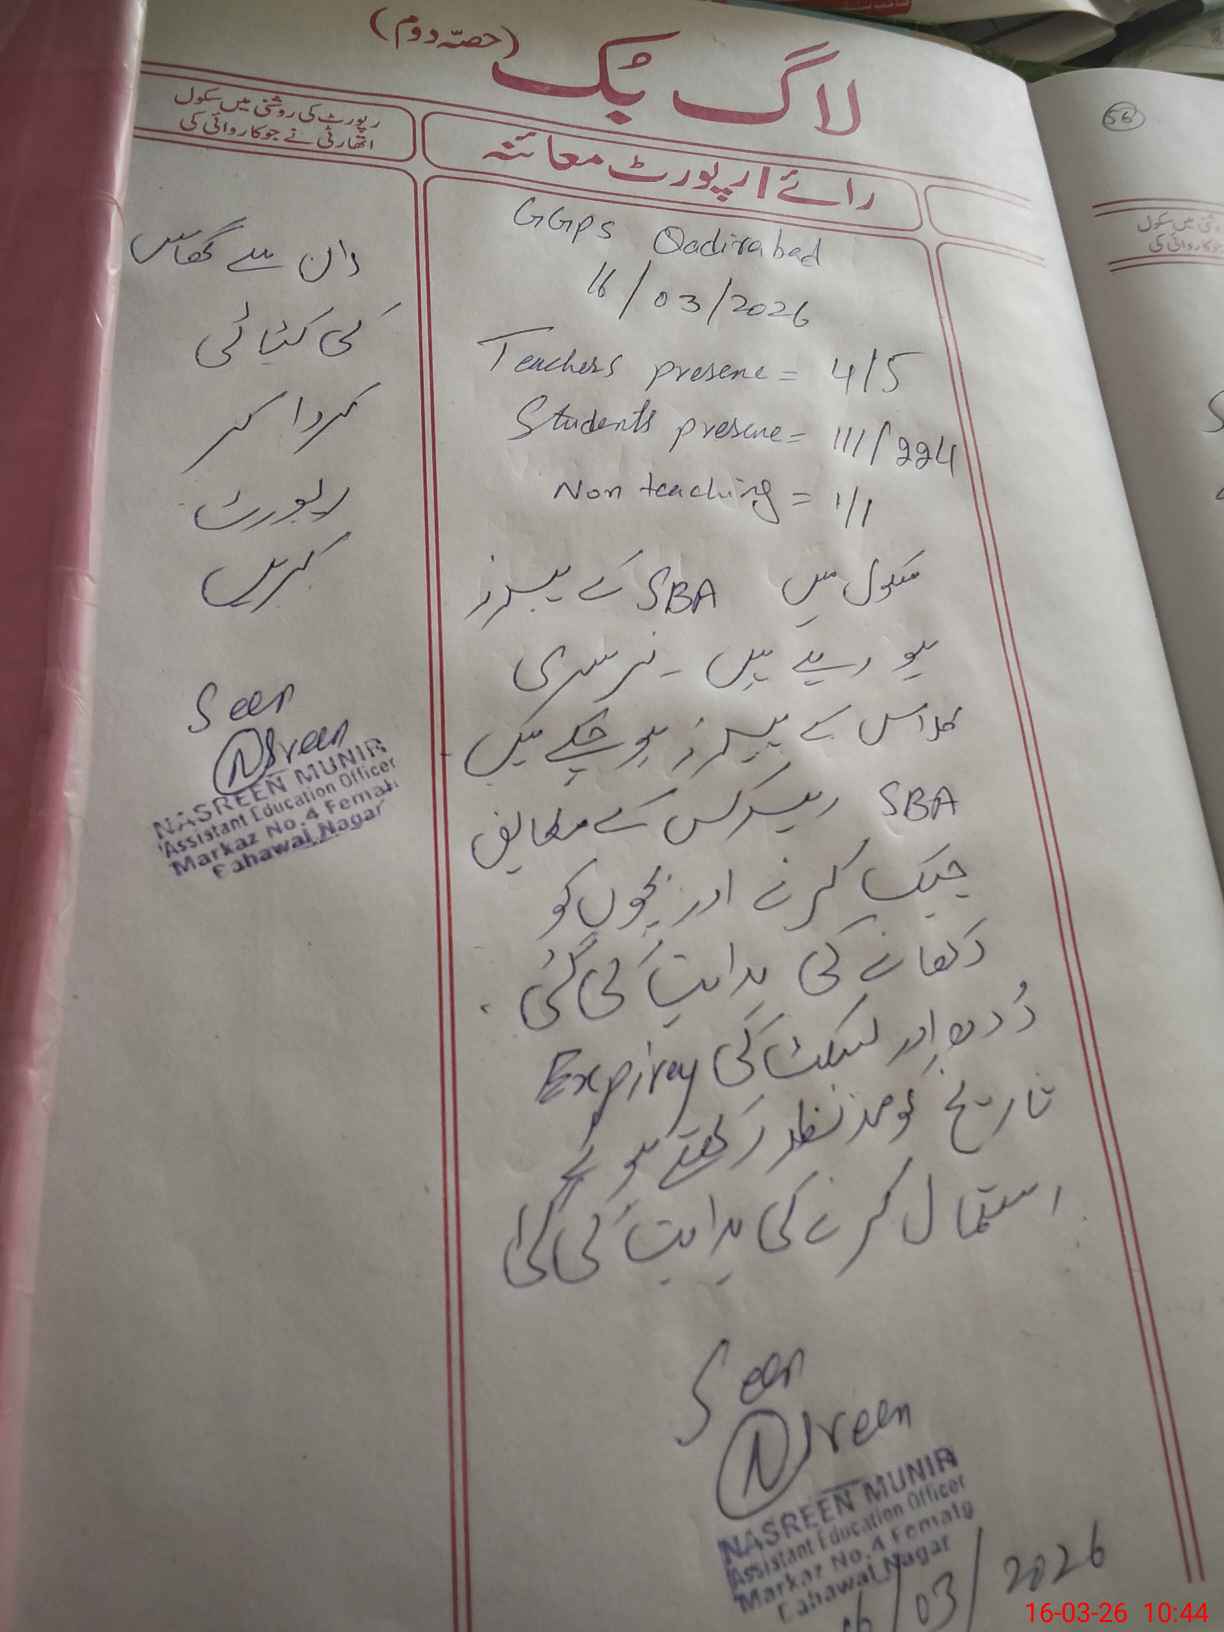 لاگ بُک (حصّہ دوم)
رائے / رپورٹ معائنہ
رپورٹ کی روشنی میں سکول
اتھارٹی نے جو کاروائی کی
GGPS Qadirabad
16/03/2026
Teachers presene = 4/5
Students presene = 111/224
Non teaching = 1/1
سکول میں SBA کے پیپرز
ہو رہے ہیں ۔ نرسری
کلاس کے پیپرز ہو چکے ہیں
SBA ریبرکس کے مطابق
چیک کرنے اور بچوں کو
دکھانے کی ہدایت کی گئی ۔
دُودھ اور بسکٹ کی Expirey
تاریخ کو مدنظر رکھتے ہوئے
استعمال کرنے کی ہدایت کی گئی
Seen
Nsreen
NASREEN MUNIR
Assistant Education Officer
Markaz No.4 Female
Bahawal Nagar
16/03/2026
لان سے گھاس
کی کٹائی
کروا کر
رپورٹ
کریں
Seen
Nsreen
NASREEN MUNIR
Assistant Education Officer
Markaz No.4 Female
Bahawal Nagar
56
16-03-26 10:44